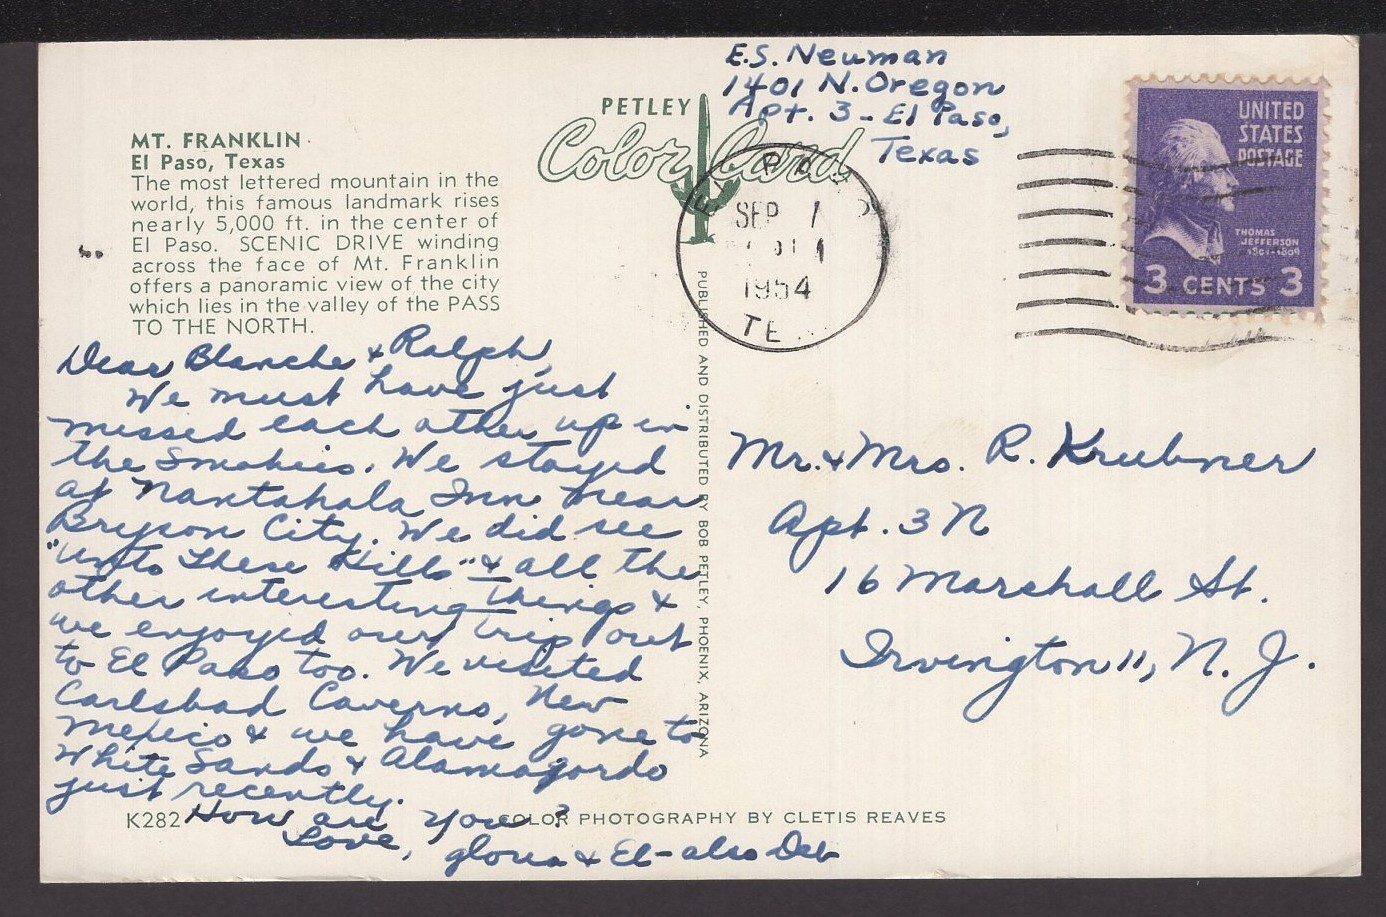 E.S. Neuman
1401 N. Oregon
Apt. 3 - El Paso,
Texas
PETLEY
Color Card
MT. FRANKLIN
El Paso, Texas
The most lettered mountain in the
world, this famous landmark rises
nearly 5,000 ft. in the center of
El Paso. SCENIC DRIVE winding
across the face of Mt. Franklin
offers a panoramic view of the city
which lies in the valley of the PASS
TO THE NORTH.
EL PASO
SEP 1
1954
TE
UNITED
STATES
POSTAGE
THOMAS
JEFFERSON
1801-1809
3 CENTS 3
PUBLISHED AND DISTRIBUTED BY BOB PETLEY, PHOENIX, ARIZONA
Dear Blanche & Ralph,
We must have just
missed each other up in
the Smokies. We stayed
at Nantahala Inn near
Bryson City. We did see
"Unto These Hills" & all the
other interesting things &
we enjoyed our trip out
to El Paso too. We visited
Carlsbad Caverns, New
Mexico & we have gone to
White Sands & Alamagordo
just recently.
How are you?
Love,
Gloria & El - also Deb
Mr. & Mrs. R. Krubner
Apt. 3N
16 Marshall St.
Irvington 11, N. J.
K282
COLOR PHOTOGRAPHY BY CLETIS REAVES